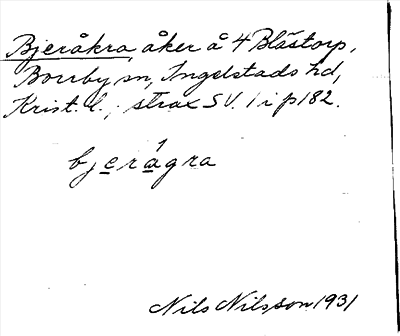 Bjeråkra, åker å 4 Blästorp,
Borrby sn, Ingelstads hd,
Krist. l.; strax S V. 1 i p 182.
bjerågra
Nils Nilsson 1931